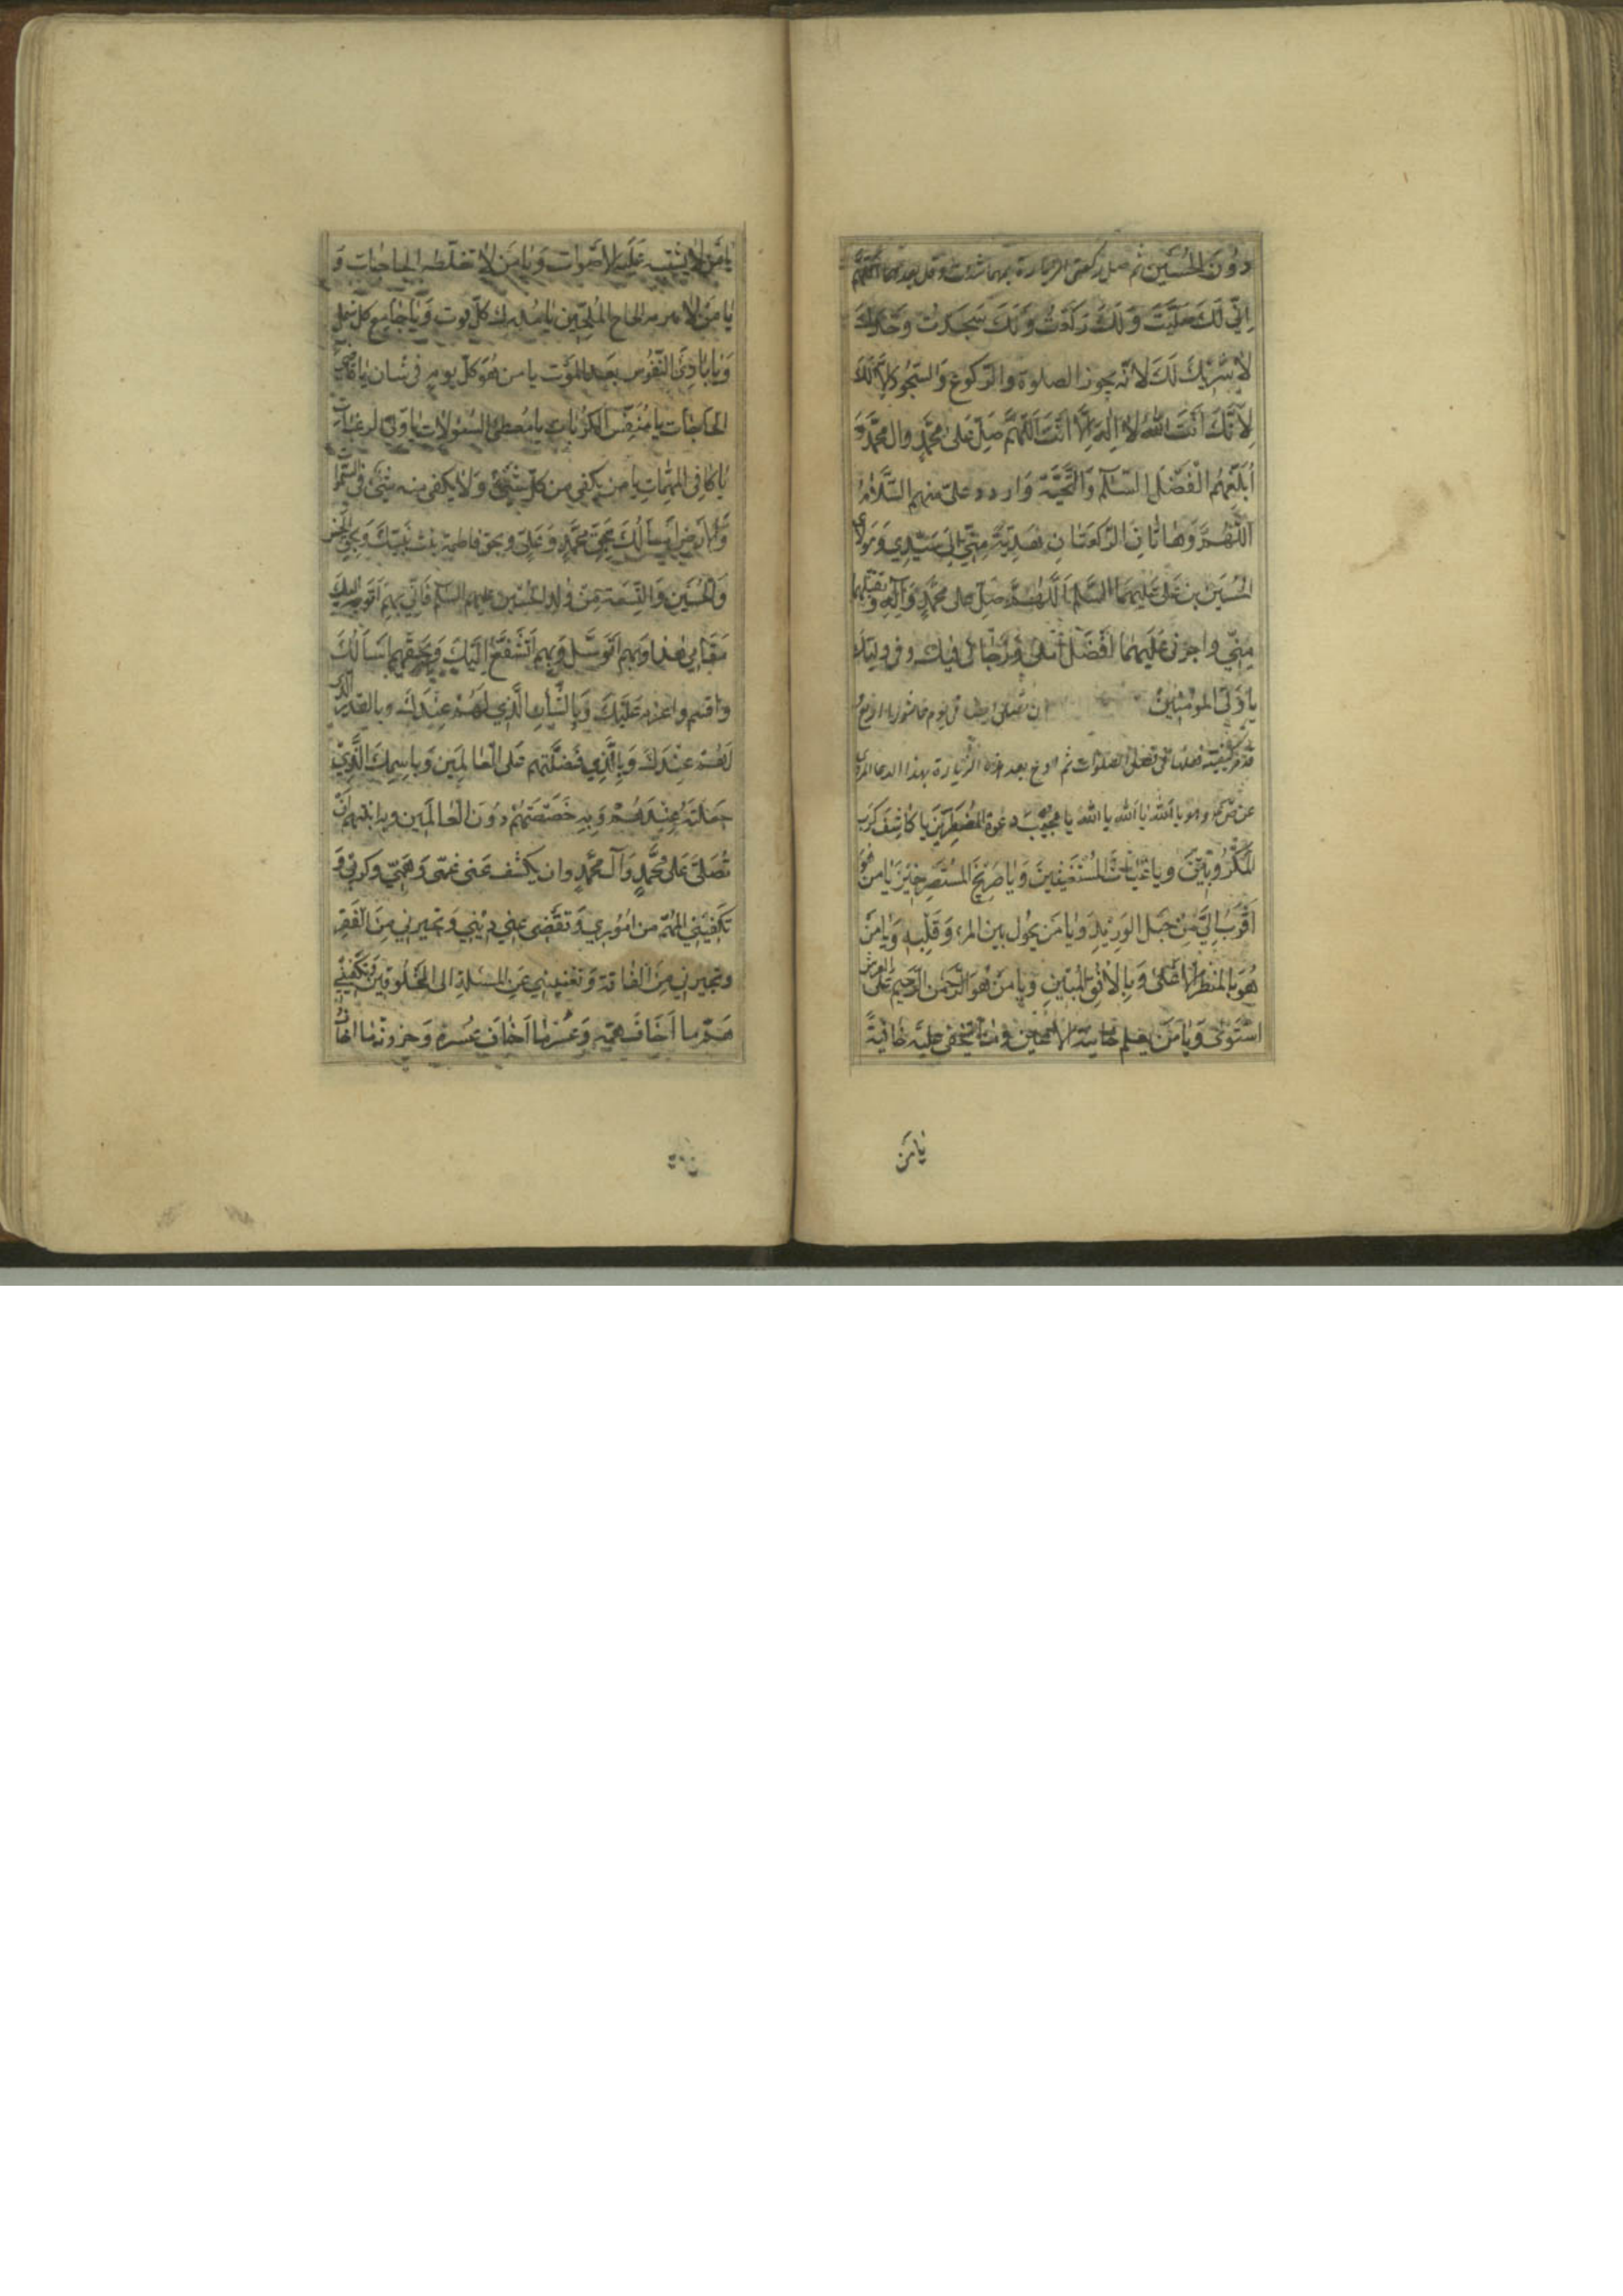 دُونَ الحُسَيْنِ ثم صل ركعتى الزيارة بمهما شئت وقل بعدهما اللّهُمَّ
اِنّي لَكَ صَلَّيْتُ وَلَكَ رَكَعْتُ وَلَكَ سَجَدْتُ وَحْدَكَ
لاٰ شَرِيْكَ لَكَ لاٰنّه يجوز الصلوة والرّكوع وَالسّجُود اِلاّ لَكَ
لِاَنَّكَ اَنْتَ اللّٰهُ لاٰ اِلهَ اِلاّٰ اَنْتَ اَللّهُمَّ صَلِّ عَلىٰ مُحَمَّدٍ وال محمّدٍ وَ
اَبْلِغْهُم اَفْضَلَ السّلٰمِ وَالتَّحِيَّة وَاردد علىّ منهم السَّلاٰمُ
اَللّٰهُمَّ وَهاتٰانِ الرَّكعَتٰانِ هَدِيَّةً مِنّي اِلىٰ سَيّدِي وَمَولاٰي
الحُسَين بن عَلى عَلَيهِمَا السّلم اَللّٰهُمَّ صَلِّ على محمّدٍ وَآلِهِ وتقبّلهما
مِنّي واجزنى عَلَيهِمٰا اَفْضَل اَمَلى وَرَجٰائى فيك وفى وليّك
يا وَلىّ المؤمنين ان تصلى ايضا فى يوم عاشورا اربع
عن ص ع وهو يا اَللّٰه يا اَللّٰه يا اللّٰهُ يا مجيْبَ دعوة المُضطَرّينَ يا كٰاشِفَ كرَب
المَكْرُوبِيْنَ ويا غيٰاثَ المُسْتَغيثِينَ وَيٰا صَرِيْخَ المُسْتَصْرِخِيْنَ يٰامن هُوَ
اَقْرَبُ اِلَيَّ مِنْ حَبْل الوَرِيْدِ وَيٰا مَن يَحُول بين المرء وَقَلْبِهِ وَيٰامَنْ
هُوَ بِالمَنْظَرِ الاَعْلىٰ وَبِالْاُفُقِ المُبين ويا مَنْ هُوَ الرَّحمٰن الرَّحيم عَلىَ العرش
اسْتَوىٰ وَيٰا مَنْ يَعلم خائنة الاعين وَمٰا تخفى عليه خافيةً
يٰا مَنْ
يٰا مَنْ لاٰ يشتبه عَلَيهِ الاَصْوات وَيٰا مَن لاٰ تغلطه الحاجات وَ
يٰا مَنْ لاٰ يبرمه الحاح المُلحّين يٰا مُدرك كلّ فوت وَيٰا جٰامِع كل شمل
وَيٰا بارِئَ النّفُوس بَعد المَوْت يا من هُوَ كلّ يوم فى شان يٰا قاضِى
الحَاجات يا مُنَفِّسَ الكُرُبات يا مُعطى السُّؤلاٰت يا وَلىّ الرغبات
يٰا كافِى المهمّات يا من يَكفى من كلّ شَيْءٍ وَلاٰ يكفى منه شَيْءٌ فى السّمٰوات
وَالارضِ اَسألُكَ بِحَقِّ مُحَمَّدٍ وَعَلِىٍّ وبحق فاطمة بنت نَبيّكَ وَبِحَقِّ الحَسن
وَالحُسَيْنِ وَالتِسْعَة مِنْ وُلدِ الحُسَيْن عليهم السّلم فَاِنّي بِهِم اَتوجّه اليك
فى مَقٰامِى هٰذا وَبهم اَتَوَسَّل وَبِهِم اَتَشَفَّعُ اِلَيْكَ وَبِحَقّهم اَسأَلُكَ
واقسم واعزم عَلَيْكَ وَبِالشّأنِ الَّذِي لَهُمْ عِنْدَكَ وبالقدر الّذى
لَهُمْ عِنْدَكَ وَبِالَّذِي فَضَّلْتَهم عَلى العٰالَمِين وَباسمِكَ الَّذِيْ
جَعَلْتَهُ عِنْدَهُمْ وَبِهِ خَصَصْتَهُمْ دُونَ العٰالَمين وبه ابنتهم اَنْ
تُصَلّىَ عَلىٰ مُحَمَّدٍ وَآل مُحَمَّدٍ وان يكشف عَنى غمّى وَهَمّي وكربى وَ
تَكْفِيَنى المُهِمّ من اُمُوْري وَتَقْضِى عَنّي دَيْني وَتجيرني مِنَ الفَقرِ
وتجيرني مِنَ الفاقة وَتغنيني عَنِ المَسئلةِ الى المخلُوقينَ وَتَكْفِيَنى
هَمَّ ما اَخافُ همّه وَعُسْرَ مٰا اَخافُ عُسْرَه وَحزونة مٰا اخافُ